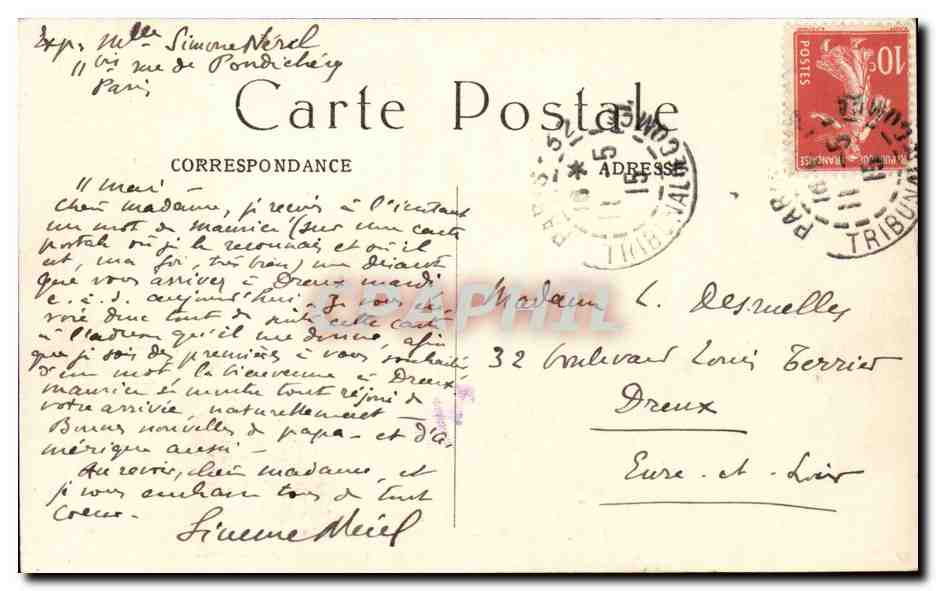 Exp. Mlle Simone Nérel
11 bis rue de Pondichéry
Paris
Carte Postale
CORRESPONDANCE
ADRESSE
10c
POSTES
RÉPUBLIQUE FRANÇAISE
PARIS-52
18 *
11 5
15
TRIBUNAL COMCE
PARIS
11 5
15
TRIBUNAL COM
11 mai -
Chère madame, je reçois à l'instant
un mot de maurice (sur une carte
postale où je le reconnais et où il
est, ma foi, très bien) me disant
que vous arrivez à Dreux mardi
c. à. d. aujourd'hui - Je vous en-
voie donc tout de suite cette carte
à l'adresse qu'il me donne, afin
que je sois des premières à vous souhaiter
d'un mot la bienvenue à Dreux
maurice se montre tout réjoui de
votre arrivée, naturellement -
Bonnes nouvelles de papa - et d'A-
mérique aussi -
Au revoir, chère madame, et
je vous embrasse tous de tout
coeur -
Simone Nérel
Madame L. Desruelles
32 boulevard Louis Terrier
Dreux
Eure-et-Loir
DELCAMPHIL